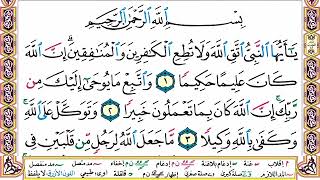 بِسْمِ ٱللَّهِ ٱلرَّحْمَٰنِ ٱلرَّحِيمِ
يَٰٓأَيُّهَا ٱلنَّبِيُّ ٱتَّقِ ٱللَّهَ وَلَا تُطِعِ ٱلْكَٰفِرِينَ وَٱلْمُنَٰفِقِينَ ۗ إِنَّ ٱللَّهَ
كَانَ عَلِيمًا حَكِيمًا ١ وَٱتَّبِعْ مَا يُوحَىٰٓ إِلَيْكَ مِن
رَّبِّكَ ۚ إِنَّ ٱللَّهَ كَانَ بِمَا تَعْمَلُونَ خَبِيرًا ٢ وَتَوَكَّلْ عَلَى ٱللَّهِ ۚ
وَكَفَىٰ بِٱللَّهِ وَكِيلًا ٣ مَّا جَعَلَ ٱللَّهُ لِرَجُلٍ مِّن قَلْبَيْنِ فِى